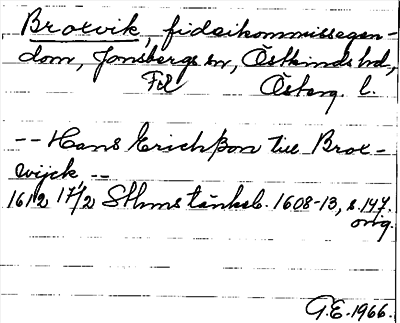 Broxvik, fideikommissegen-
dom, Jonsbergs sn, Östkinds hd,
Fol Österg. l.
-- Hans Erichßon till Brox-
wijck --
1612 17/2 Sthms tänkeb. 1608-13, s. 147.
orig.
G.E. 1966.